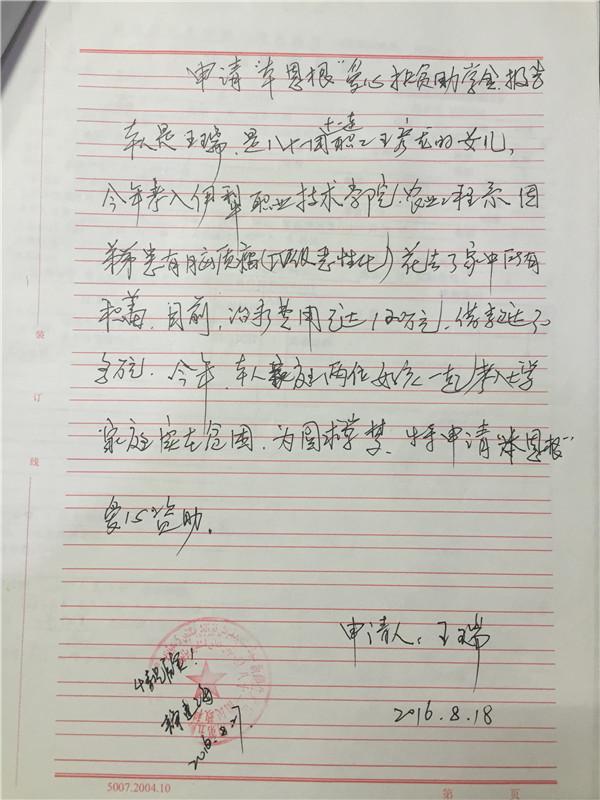 申请"李恩根"爱心扶贫助学金报告
十一连
本人是王瑞,是八十一团职工王彦龙的女儿,
今年考入伊犁职业技术学院,农业工程系因
弟弟患有脑质瘤(IV级恶性化)花去了家中所有
积蓄,目前,治疗费用已达120万元,借款达70
多万元.今年,本人家庭两位女孩一起考入大学
家庭实在贫困.为圆求学梦,特申请"李恩根"
爱心资助.
申请人:王瑞
2016.8.18
情况属实!
2016.8.27
装
订
线
5007.2004.10
第 页